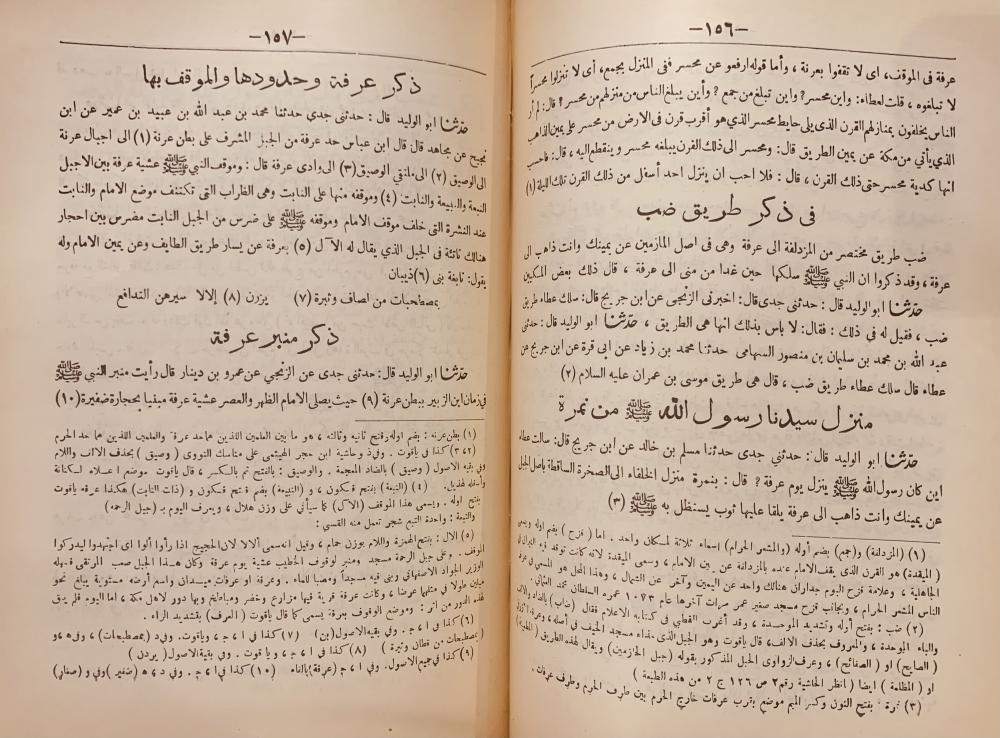 -١٥٦-
عرفة فى الموقف، اى لا تقفوا بعرنة ، وأما قوله ارفعو عن محسر ففى المنزل بجمع، أى لا تنزلوا محسراً
لا تبلغوه ، قلت لعطاء: واين محسر؟ واين تبلغ من جمع ؟ وأين يبلغ الناس من منزلهم من محسر ؟ قال: لم أر
الناس يخلفون بمنازلهم القرن الذى يلى حايط محسر الذي هو أقرب قرن فى الارض من محسر على يمين الذاهب
الذي يأتي من مكة عن يمين الطريق قال: ومحسر الى ذلك القرن يبلغه محسر و ينقطع اليه ، قال: فاحسب
انها كدية محسر حتى ذلك القرن ، قال : فلا احب ان ينزل احد أسفل من ذلك القرن تلك الليلة (١)
فى ذكر طريق ضب
ضب طريق مختصر من المزدلفة الى عرفة وهى فى اصل المازمين عن يمينك وانت ذاهب الى
عرفة ، وقد ذكروا ان النبي ﷺ سلكها حين غدا من منى الى عرفة ، قال ذلك بعض المكيين
حدّثنا ابو الوليد قال : حدثنى جدى قال: اخبرنى الزنجى عن ابن جريج قال: سلك عطاء طريق
ضب ، فقيل له في ذلك : فقال: لا باس بذلك انها هى الطريق ، حدّثنا ابو الوليد قال: حدثنى
عبد الله بن محمد بن سليمان بن منصور السهامى حدثنا محمد بن زياد عن ابى قرة عن ابن جريج عن
عطاء قال سلك عطاء طريق ضب ، قال هى طريق موسى بن عمران عليه السلام (٢)
منزل سيدنا رسول الله ﷺ من نمرة
حدّثنا ابو الوليد قال : حدثني جدى حدثنا مسلم بن خالد عن ابن جريج قال: سالت عطاء
اين كان رسول الله ﷺ ينزل يوم عرفة ? قال : بنمرة منزل الخلفاء الى الصخرة الساقطة باصل الجبل
عن يمينك وانت ذاهب الى عرفة يلقا عليها ثوب يستنظل به ﷺ (٣)
(١) (المزدلفة) و(جمع) بضم أوله و(المشعر الحرام) اسماء ثلاثة لمكان واحد . اما (قزح) بضم اوله ويسمى
( الميقدة) هو القرن الذى يقف الامام عنده بالمزدلفة عن يمين الامام ، وسمى الميقدة لانه كانت توقد فيه النيران فى
الجاهلية ، وعلامة قزح اليوم جداران هنالك واحد عن اليمين وآخر عن الشمال ، وهذا المحل هو المسمى في عرف
الناس المشعر الحرام ، وبجانب قزح مسجد صغير عمر مرات آخرها عام ١٠٧٣ عمره السلطان محمد العثمانى .
(٢) ضب : بفتح أوله وتشديد الموحدة ، وقد أغرب القطبى فى كتابه الاعلام فقال (ضاب) بالضاد والالف
والباء الموحدة ، والمعروف بحذف الالف، قال ياقوت وهو الجبل الذى حذاء مسجد الخيف فى أصله ،
( الصايح) او ( الصفائح) ، وعرف الزواوى الجبل المذكور بقوله (جبل المازمين) ويقال لهذه الطريق
او ( المظلمة ) ايضا ( انظر الحاشية رقم ٢ ص ١٢٦ ج ٢ من هذه الطبعة )
(٣) نمرة : بفتح النون وكسر الميم موضع بقرب عرفات خارج الحرم بين طرف الحرم وطرف عرفات .
-١٥٧-
ذكر عرفة وحدودها والموقف بها
حدّثنا ابو الوليد قال : حدثنى جدي حدثنا محمد بن عبد الله بن عبيد بن عمير عن ابن
نجيح عن مجاهد قال قال ابن عباس حد عرفة من الجبل المشرف على بطن عرنة (١) الى اجبال عرنة
الى الوصيق (٢) الى ملتقي الوصيق(٣) الى وادى عرفة قال : وموقف النبي ﷺ عشية عرفة بين الاجبل
النبعة والنبيعة والنابت (٤) وموقفه منها على النابت وهى الظراب التى تكتنف موضع الامام والنابت
عند النشرة التى خلف موقف الامام وموقفه ﷺ على ضرس من الجبل النابت مضرس بين احجار
هنالك ناتئة فى الجبل الذي يقال له الآل (٥) بعرفة عن يسار طريق الطايف وعن يمين الامام وله
يقول: نابغة بنى (٦) ذبيان
بمصطحبات من لصاف وثبرة (٧) يزرن (٨) إلالا سيرهن التدافع
ذكر منبر عرفة
حدّثنا ابو الوليد قال: حدثنى جدى عن الزنجي عن عمرو بن دينار قال رأيت منبر النبي ﷺ
في زمان ابن الزبير ببطن عرنة (٩) حيث يصلى الامام الظهر والعصر عشية عرفة مبنيا بحجارة صغيرة (١٠)
(١) بطن عرنه : بضم اوله وفتح ثانيه وثالثه ، هو ما بين العلمين اللذين هما حد عرفة والعلمين اللذين هما حد الحرم
(٢،٣) كذا فى ياقوت . وفى د وحاشية ابن حجر الهيثمى على مناسك النووى (وصيق) بحذف الالف واللام
وفى بقيه الاصول (وضيق) بالضاد المعجمة . والوصيق : بالفتح ثم بالكسر ، قال ياقوت موضع اعلاه لكنانة
وأسفله لهذيل. (٤) (النبعة) بفتح فسكون ، و (النبيعة) بضم ففتح فسكون و (ذات النابت) هكذا عرفه ياقوت
بفتح اوله . ويسمى هذا الموقف (الآل) كما سيأتى على وزن هلال ، ويعرف اليوم بـ (جبل الرحمه)
والنبعة : واحدة النبع شجر تعمل منه القسي :
(٥) الال : بفتح الهمزة واللام بوزن حمام ، وقيل انه سمى ألالا لان الحجيج اذا رأوا ألوا اى اجتهدوا ليدركوا
الموقف . وعلى جبل الرحمة مسجد ومنبر لوقوف الخطيب عشية يوم عرفة وكان هذا الجبل صعب المرتقى فسهله
الوزير الجواد الاصفهانى وبنى فيه مسجداً ومصبا للماء . وعرفة او عرفات ميسدان واسع أرضه مستوية يبلغ نحو
ميلين طولا فى مثلهما عرضا ، وكانت عرفة قرية فيها مزارع وخضر ومباطيخ وبها دور لاهل مكة ، اما اليوم فلم يبق
لهذه الدور من اثر : وموضع الوقوف بعرفة يسمى كما قال ياقوت ( المعرف) بتشديد الراء .
(٦) كذا فى ا ، ج . وفى بقيه الاصول (بن) (٧) كذا فى ا ، ج ، وياقوت. وفى د (بمصطحبات) ، وفى هـ ، و
(بمصطلحبات من قطان وتيرة ) (٨) كذا فى ا ، ج ، ويا قوت . وفى بقية الاصول( يردن )
(٩) كذا في جميع الاصول. وفى ا ، ج (عرفة) بالفاء (١٠) كذا فى ا، ج . وفى د ، هـ (ضفير ) وفى و (صغار)